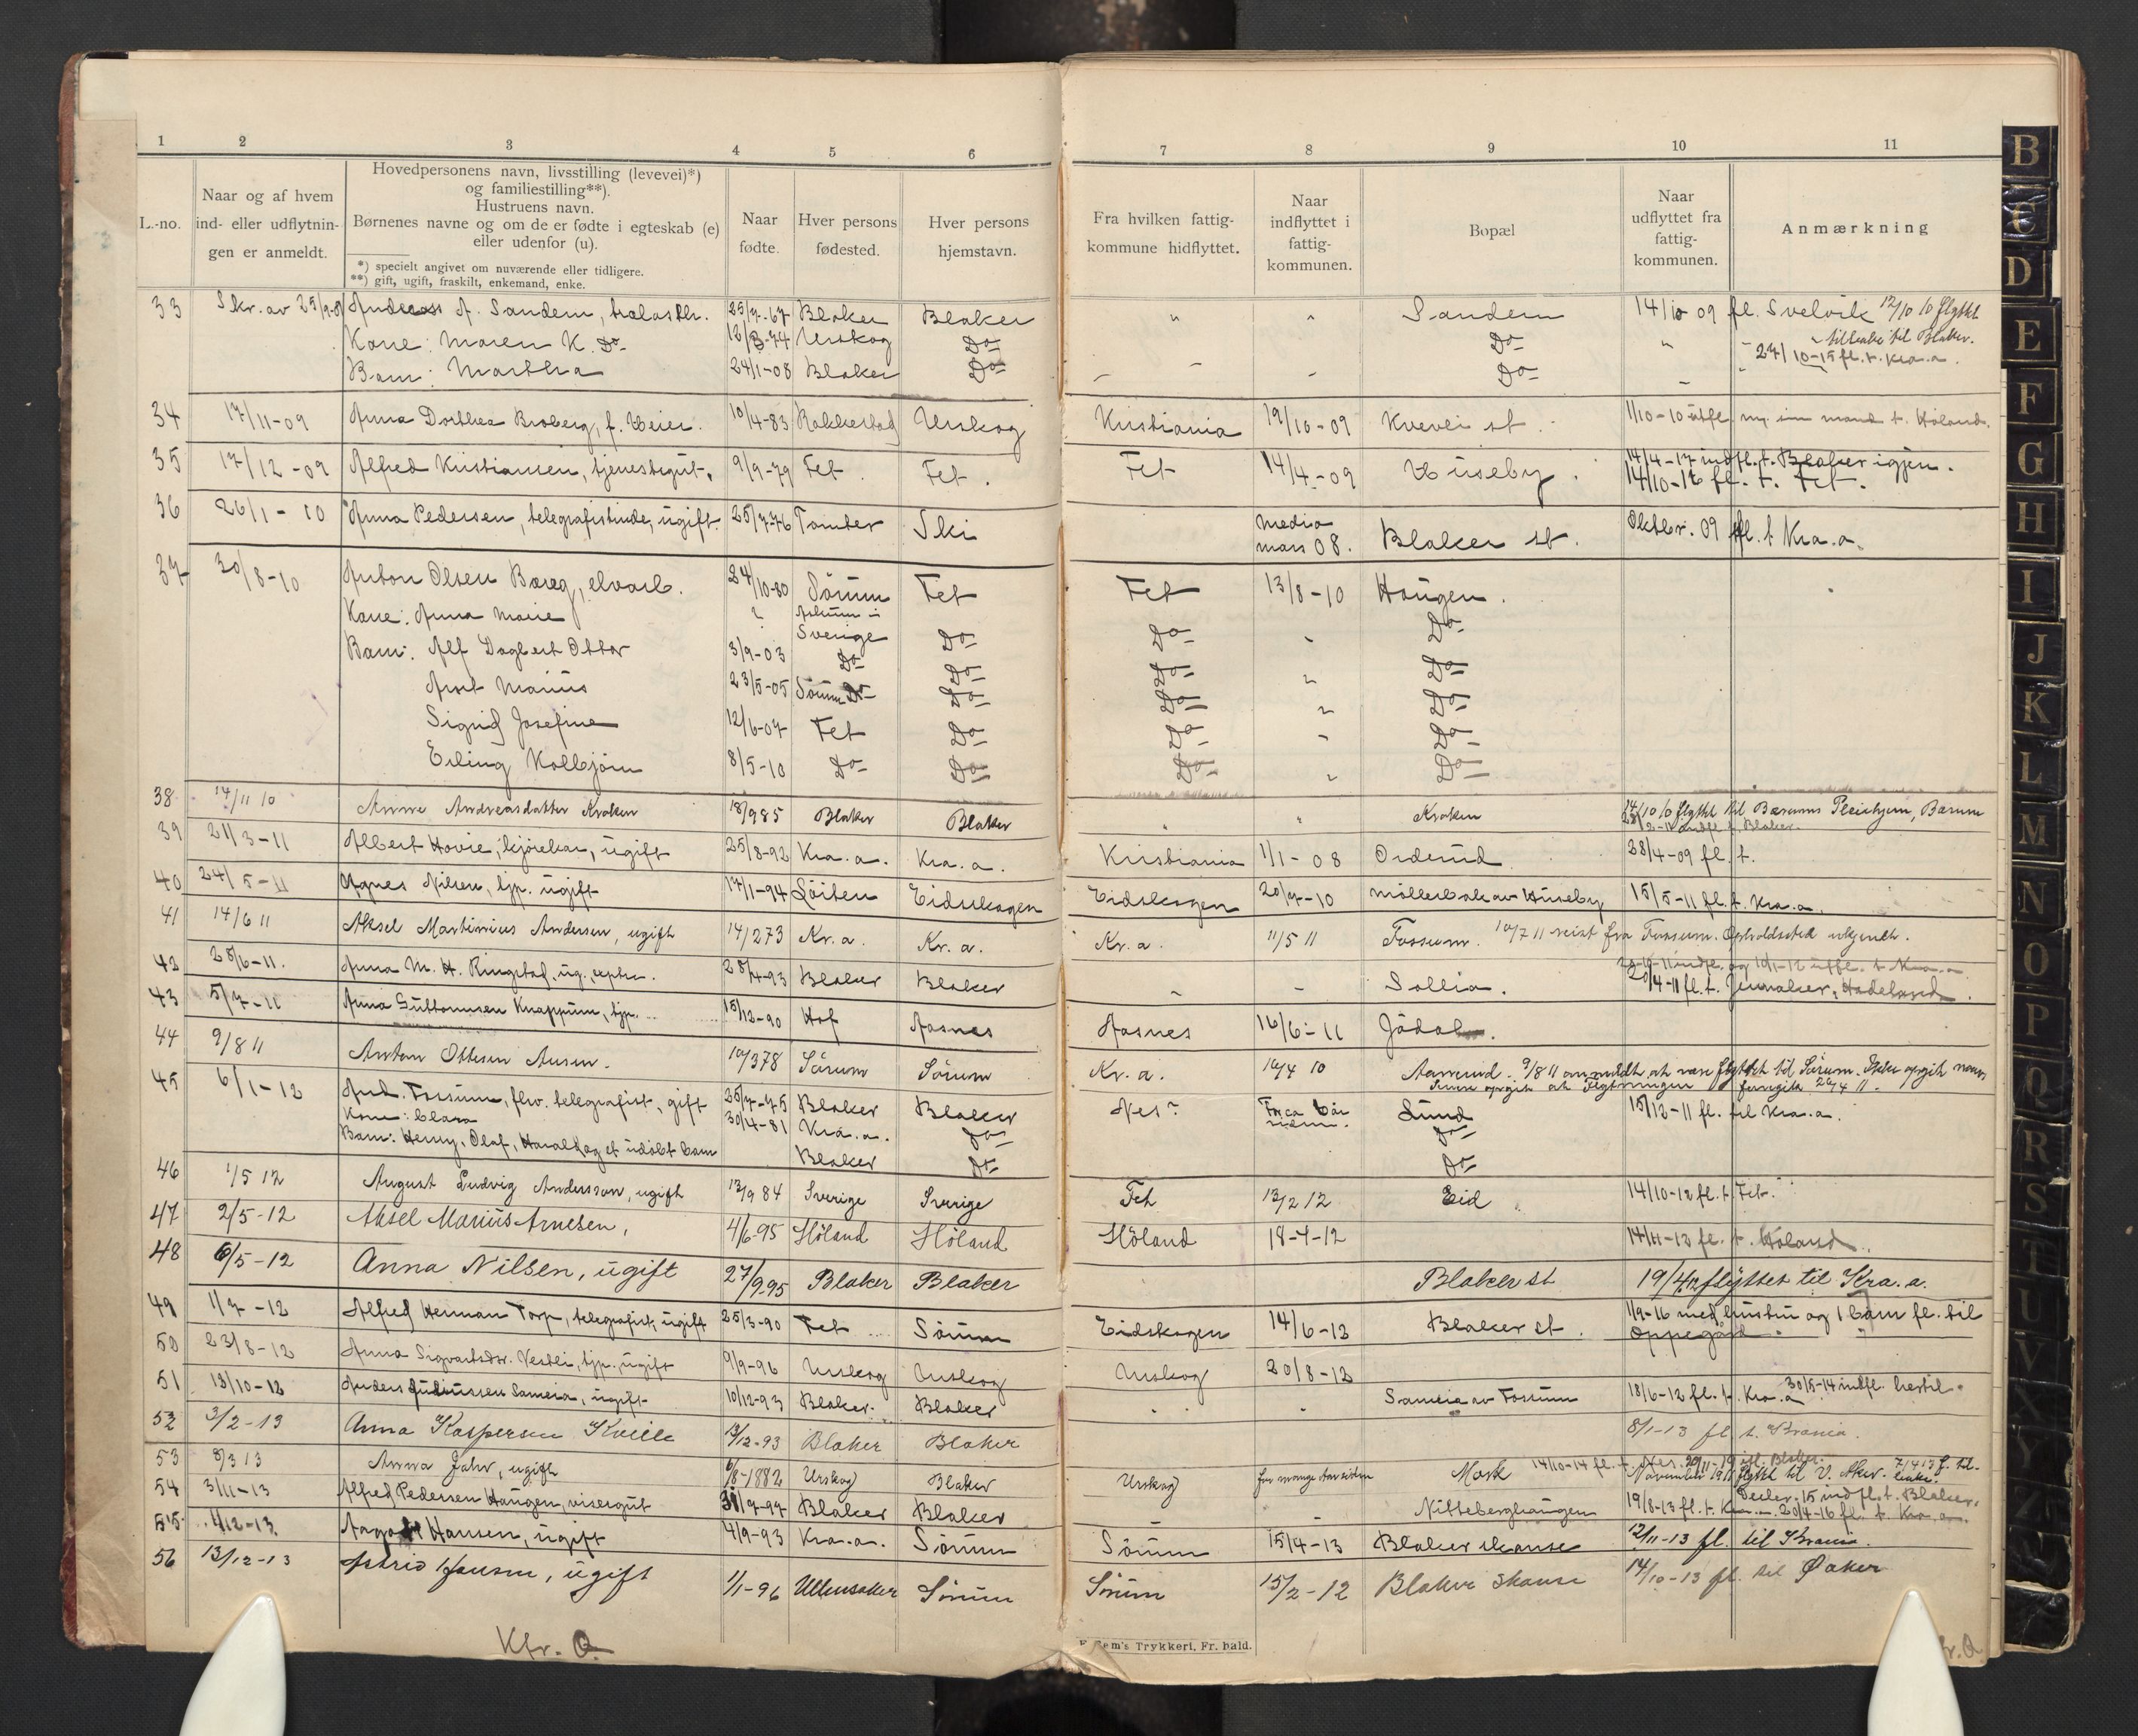 1 2 3 4 5 6 7 8 9 10 11
L.-no.
Naar og af hvem
ind- eller udflytnin-
gen er anmeldt.
Hovedpersonens navn, livsstilling (levevei)*)
og familiestilling**).
Hustruens navn.
Børnenes navne og om de er fødte i egteskab (e)
eller udenfor (u).
*) specielt angivet om nuværende eller tidligere.
**) gift, ugift, fraskilt, enkemand, enke.
Naar
fødte.
Hver persons
fødested.
Hver persons
hjemstavn.
Fra hvilken fattig-
kommune hidflyttet.
Naar
indflyttet i
fattig-
kommunen.
Bopæl
Naar
udflyttet fra
fattig-
kommunen.
Anmærkning
33 Skr. av 25/9-09 Andreas A. Sandem, 25/7-67 Blaker Blaker " " Sandem 14/10 09 fl. Svelvik 12/10 10 flyttet
tilbake til Blaker.
Kone: Maren K. Do 12/3-74 Urskog Do Do " 27/10-15 fl. t. Kra.a.
Barn: Martha 24/1-08 Blaker Do Do
34 17/11-09 Anna Dorthea Broberg, f. Heier. 10/4-83 Rakkestad Urskog Kristiania 19/10-09 Kvevli st. 1/10-10 utfl. m. sin mand t. Höland.
35 17/12-09 Alfred Kristiansen, tjenestegut. 9/9-79 Fet. Fet. Fet 14/4-09 Huseby. 14/4-17 indfl. t. Blaker igjen.
14/10-16 fl. t. Fet.
36 26/1-10 Anna Pedersen, telegrafistinde, ugift. 25/7-76 Tomter Ski medio
mars 08. Blaker st. Oktbr. 09 fl. t Kra.a.
37 30/8-10 Anton Olsen Bæreg, elvarb. 24/10-80 Sörum Fet Fet 13/8-10 Haugen.
Kone: Anna Marie " Sverige Do Do " Do
Barn: Alf Dagbert Ottar 3/9-03 Do Do Do " Do
Arnt Marius 23/5-05 Sörum Do Do " Do
Sigrid Josefine 12/6-07 Fet Do Do " Do
Erling Kolbjörn 8/5-10 Do Do Do " Do
38 14/11 10 Anne Andreasdatter Kroken 18/9 85 Blaker Blaker " " Kroken 14/10 10 flyttet til Bærums Pleiehjem, Bærum
indfl. t. Blaker.
39 21/3-11 Albert Hovie, kjörekar, ugift 25/8-92 Kra.a. Kra.a. Kristiania 1/1-08 Orderud. 28/4-09 fl. t.
40 24/5-11 Agnes Nilsen, tjp. ugift 17/1-94 Löiten Eidskogen Eidskogen 20/7-10 Möllerbak av Huseby 15/5-11 fl. t. Kra.a.
41 14/6 11 Aksel Martinius Andersen, ugift 14/2 73 Kr.a. Kr.a. Kr.a. 11/5 11 Fossum. 10/7 11 reist fra Fossum. Opholdssted ukjendt.
42 28/6-11. Anna M. H. Ringstad, ug. 28/4-93 Blaker Blaker " " Sollia. indfl. og 10/1-12 utfl. t. Kra.a.
20/4-11 fl. t. Jevnaker, Hadeland.
43 5/7-11 Anna Guttormsen Knappum, tjp. 15/12-90 Hof Aasnes Aasnes 16/6-11 Jödal.
44 9/8 11 Anton Ottesen Ausen. 10/3 78 Sörum Sörum Kr.a. 10/4 10 Aamrud. 9/8 11 anmeldt at være flyttet til Sörum. Ikke opgit naar.
Senere opgit at flytningen foregik 26/4 11.
45 6/1-12 And. Fossum, fhv. telegrafist, gift 25/7-75 Blaker Blaker Nes? For ca. 6 aar
siden. Lund 15/12-11 fl. til Kra.a.
Kone: Clara 30/4-81 Kra.a. Do Do
Barn: Henry, Olaf, Harald og et udöbt barn Blaker Do Do
46 1/5 12 August Ludvig Andersson, ugift 13/9 84 Sverige Sverige Fet 13/2 12 Eid 14/10-12 fl. t. Fet.
47 2/5-12 Aksel Marius Arnesen, 4/6-95 Höland Höland Höland 18-4-12 14/11-13 fl. t. Höland.
48 6/5-12 Anna Nilsen, ugift 27/9-95 Blaker Blaker Blaker st 19/4 12 flyttet til Kra.a.
49 1/7-12 Alfred Herman Torp, telegrafist, ugift 25/3-90 Fet Sörum Eidskogen 14/6-12 Blaker st. 1/9-16 med hustru og 1 barn fl. til
Oppegård.
50 23/8-12 Anna Sigvartsdtr. Vestli, tjp. ugift 9/9-96 Urskog Urskog Urskog 20/8-12
51 13/10-12 Anders Juliussen Sameia, ugift 10/12-93 Blaker. Blaker " " Sameia av Fossum 18/6-12 fl. t. Kra.a 30/5-14 indfl. hertil.
52 3/2-13 Anna Kaspersen Kvile 13/12-93 Blaker Blaker 8/1-13 fl t. Krania.
53 8/3 13 Anna Jahr, ugift 6/8-1882 Urskog Blaker Urskog for mange aar siden Mork 14/10-14 fl. t. Nes. Blaker.
November 1911 flyttet til V. Aker.
54 3/11-13 Alfred Pedersen Haugen, visergut 31/7-97 Blaker Blaker " " Nitteberghaugen Decbr. 15 indfl. t. Blaker.
19/8-13 fl. t. Kra.a. 20/4-16 fl. t. Kra.a.
55 4/12-13 Aagot Hansen, ugift 4/9-93 Kra.a. Sörum Sörum 15/4-13 Blaker skanse 12/11-13 fl. til Krania.
56 13/12-13 Astrid Hansen, ugift 1/1-96 Ullensaker Sörum Sörum 15/2-12 Blaker skanse 14/10-13 fl. til Øaker
Kfr. Q.
Trykkeri, Fr. hald.
B
C
D
E
F
G
H
I
J
K
L
M
N
O
P
Q
R
S
T
U
V
X
Y
Z